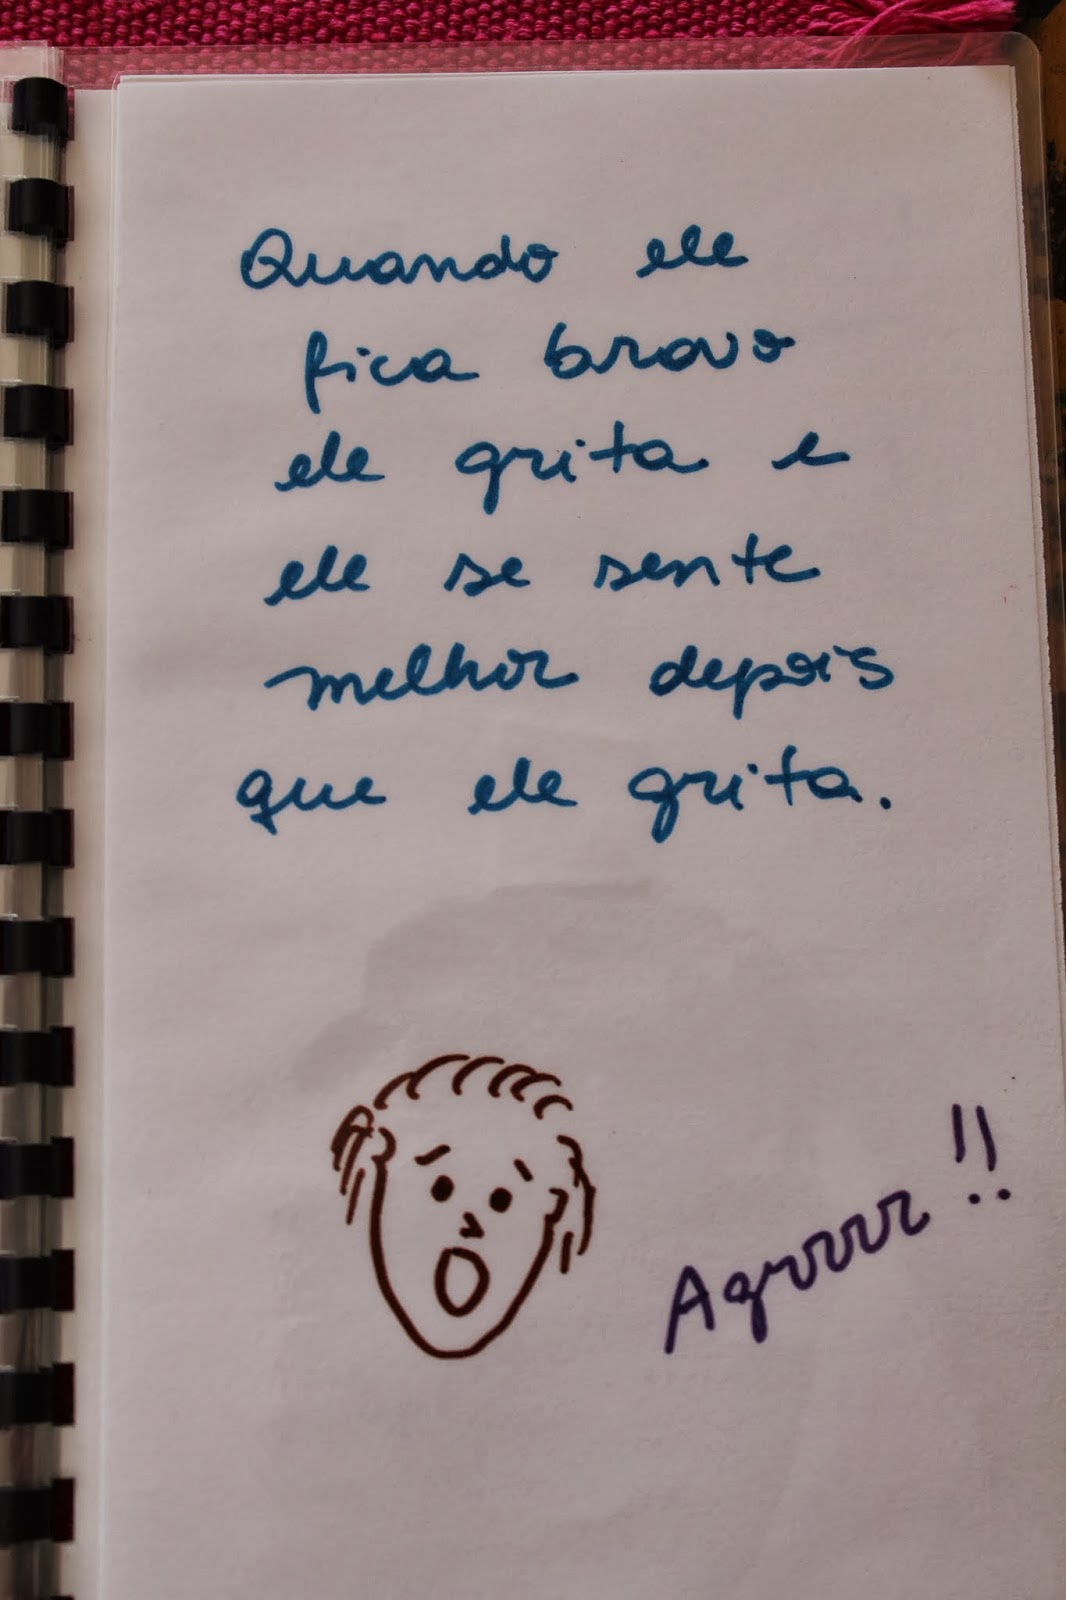 Quando ele
fica bravo
ele grita e
ele se sente
melhor depois
que ele grita.
Agrrrr!!